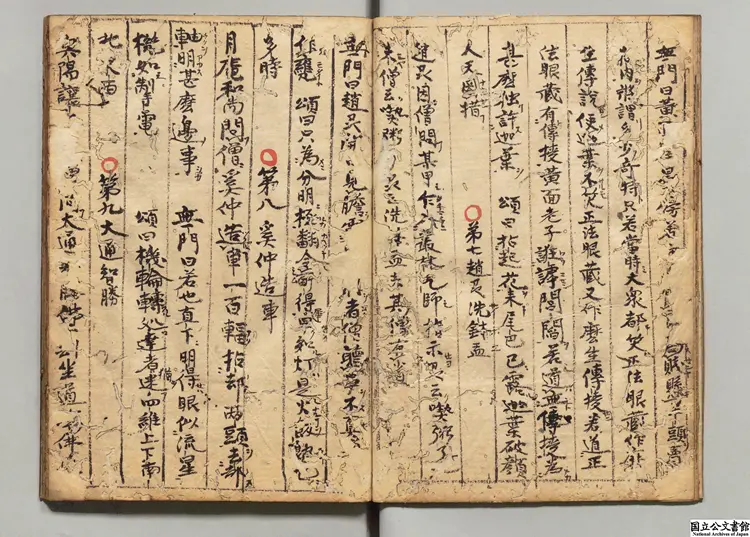 無門曰黄傍若羊頭賣
狗肉將謂多少奇特只若當時大衆都笑正法眼藏作麼
生傳設使迦葉不笑正法眼藏又作麼生傳授若道正
法眼藏有傳授黄面老子誑謼閭閻若道無傳授為
甚麼独許迦葉 頌曰拈起花来尾巴已露迦葉破顔
人天罔措 第七趙州洗鉢盂
趙州因僧問某甲乍入叢林乞師指示州云喫粥了
未僧云喫粥了州云洗鉢盂去其僧有省
無門曰趙州開口見膽者僧聽事不真
作甕 頌曰只為分明極翻令所得早知灯是火飯熟已
多時 第八奚仲造車
月庵和尚問僧奚仲造車一百輻拈却兩頭去却
軸明甚麼邊事 無門曰若也直下明得眼似流星
機如掣電 頌曰機輪轉処達者迷四維上下南
北西 第九大通智勝
興陽讓問大通勝佛刧坐道佛
国立公文書館
National Archives of Japan